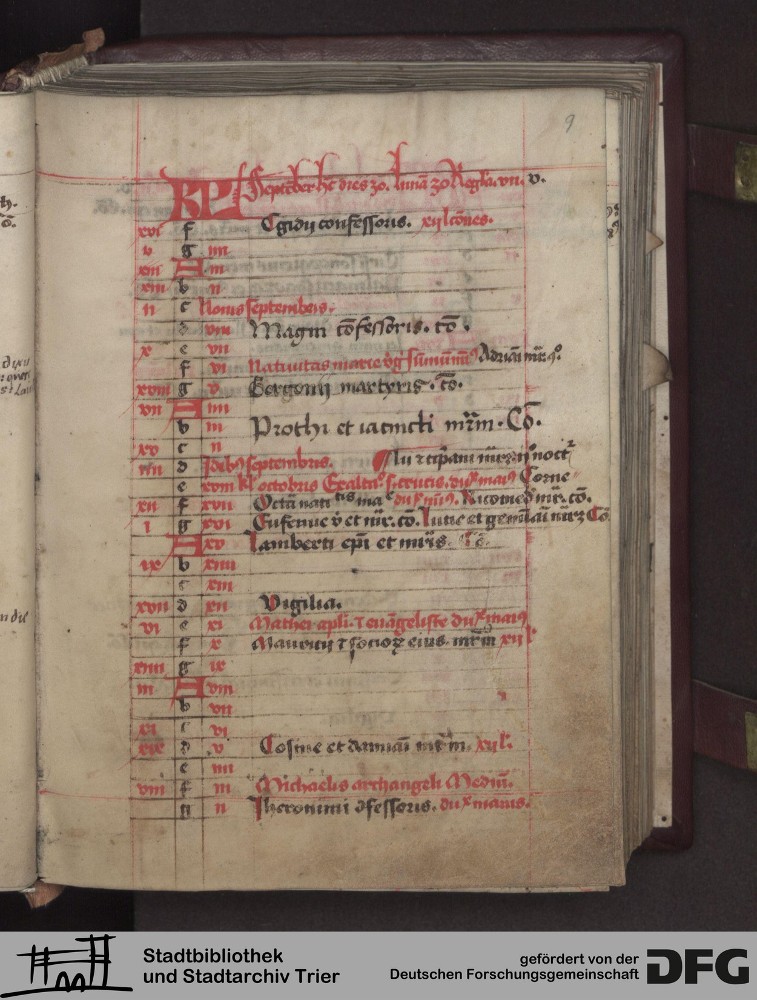 9
KL September hꝫ dies 30. lunā 30 Regla. vii. v.
xvi f Egidii confessoris. xii lc̄ones.
v g iiii
xiii A iii
xiii b ii
ii c Nonis septembris.
d viii Magni cōfessoris. Cō.
x e vii
f vi Natiuitas marie v̄g sum̄um Adriani mr̄is
xviii g v Gorgonii martyris. Cō.
vii A iiii
b iii Prothi et iacincti mr̄m. Cō.
xv c ii
iiii d Idibꝰ septembris.
e xviii kl octobris Exaltaº s. crucis. du͞x maiꝰ Corne
lii ⁊ cip̄ani
xii f xvii Octā nati tis ma e du͞x Nicomedis mr̄. cō.
i g xvi Eufemie v̄ et mr̄. cō. lucie et geminiani Cō
A xv lamberti ep̄i et mr̄is. Cō
ix b xiiii
c xiii
xvii d xii Vigilia.
vi e xi Mathei apli. ⁊ euāgeliste du͞x maiꝰ
f x Mauricii ⁊ socioꝝ eius. mr̄m xii l
xiiii g ix
iii A viii
b vii
xi c vi
xix d v Cosme et damiani mr̄m. xii l.
e iiii
viii f iii Michaelis archangeli Mediū.
g ii Iheronimi ꝯfessoris. du͞x maius.
Stadtbibliothek
und Stadtarchiv Trier
gefördert von der
Deutschen Forschungsgemeinschaft
DFG